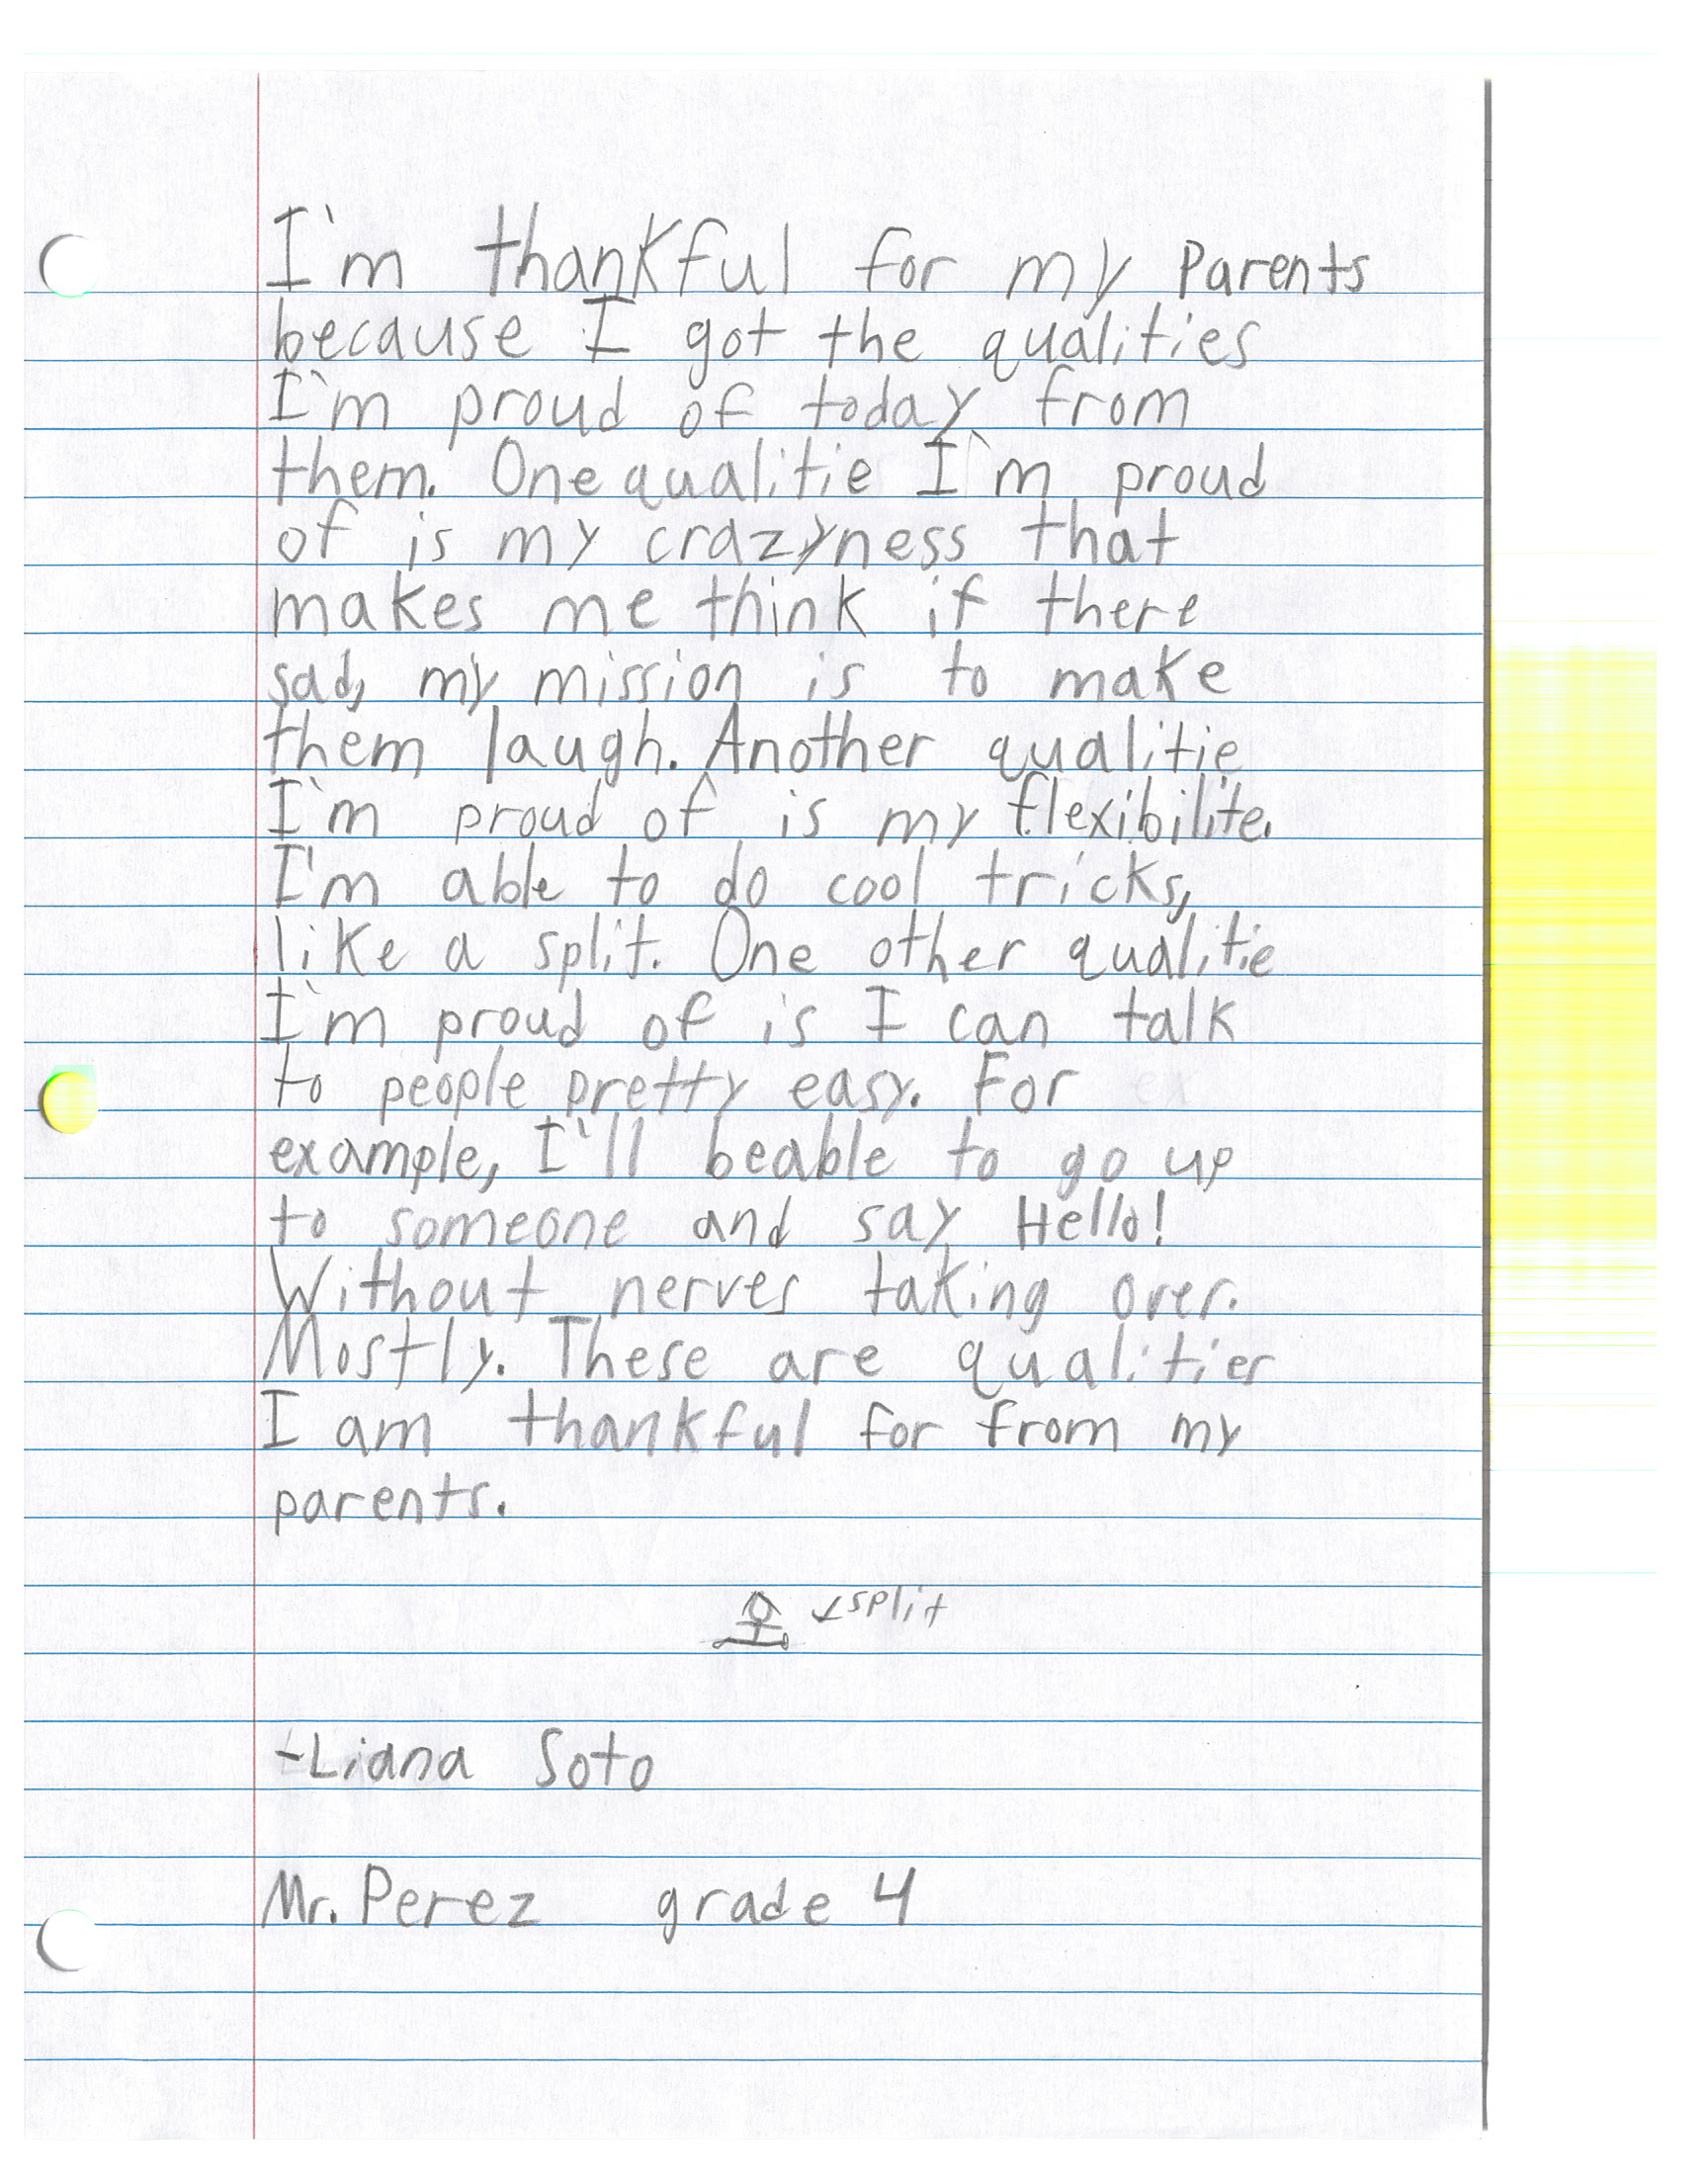 I'm thankful for my Parents
because I got the qualities
I'm proud of today from
them. One qualitie I'm proud
of is my crazyness that
makes me think if there
sad, my mission is to make
them laugh. Another qualitie
I'm proud of is my flexibilite.
I'm able to do cool tricks,
like a split. One other qualitie
I'm proud of is I can talk
to people pretty easy. For
example, I'll beable to go up
to someone and say Hello!
Without nerves taking over.
Mostly. These are qualities
I am thankful for from my
parents.
split
-Liana Soto
Mr. Perez grade 4